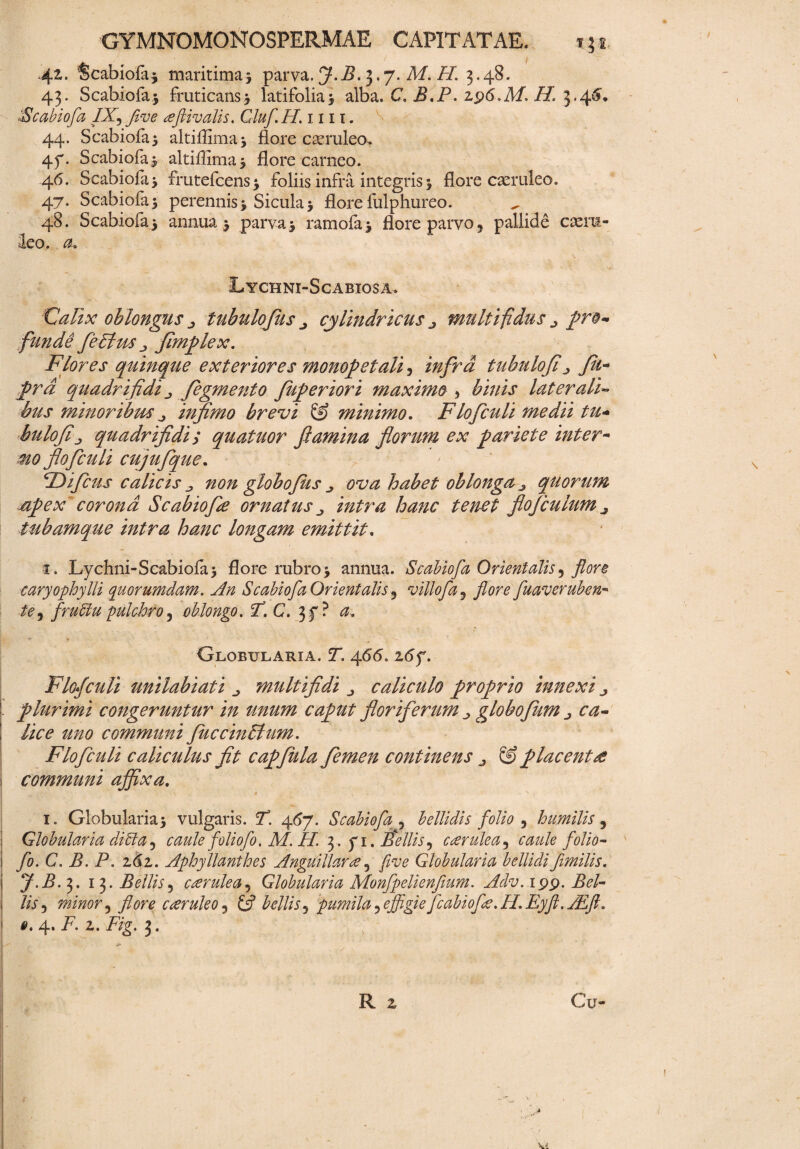 GYMNOMONOSPERMAE CAPITATAE. 131
42. Scabiosa; maritima; parva. J.B. 3.7. M. H. 3.48.
43. Scabiosa; fruticans; latifolia; alba. C. B.P. 296. M. H. 3.46.
Scabiosa IX, sive æstivalis. Clus. H. 1111.
44. Scabiosa; altissima; flore cæruleo.
45. Scabiosa; altissima; flore carneo.
46. Scabiosa; frutescens; foliis infrà integris; flore cæruleo.
47. Scabiosa; perennis; Sicula; flore sulphureo.
48. Scabiosa; annua; parva; ramosa; flore parvo, pallidè cæru-
leo. a.
LYCHNI-SCABIOSA.
Calix oblongus, tubulosus, cylindricus, multifidus, pro-
fundè sectus, simplex.
Flores quinque exteriores monopetali, infrà tubulosi, su-
prà quadrifidi, segmento superiori maximo, binis laterali-
bus minoribus, infimo brevi & minimo. Flosculi medii tu-
bulosi, quadrifidi; quatuor stamina florum ex pariete inter-
no flosculi cujusque.
Discus calicis, non globosus, ova habet oblonga, quorum
apex coronâ Scabiosæ ornatus, intra hanc tenet flosculum,
tubamque intra hanc longam emittit.
1. Lychni-Scabiosa; flore rubro; annua. Scabiosa Orientalis, flore
caryophylli quorumdam. An Scabiosa Orientalis, villosa, flore suaveruben-
te, fructu pulchro, oblongo. T. C. 35? a.
GLOBULARIA. T. 466. 265.
Flosculi unilabiati, multifidi, caliculo proprio innexi,
plurimi congeruntur in unum caput floriferum, globosum, ca-
lice uno communi succinctum.
Flosculi caliculus fit capsula semen continens, & placentæ
communi affixa.
1. Globularia; vulgaris. T. 467. Scabiosa, bellidis folio, humilis,
Globularia dicta, caule folioso. M. H. 3. 51. Bellis, cærulea, caule folio-
so. C. B. P. 262. Aphyllanthes Anguillaræ, sive Globularia bellidi similis.
J.B. 3. 13. Bellis, cærulea, Globularia Monspeliensium. Adv. 199. Bel-
lis, minor, flore cæruleo, & bellis, pumila, effigie scabiosæ. H. Eyst. Æst.
o. 4. F. 2. Fig. 3.
R 2 Cu-